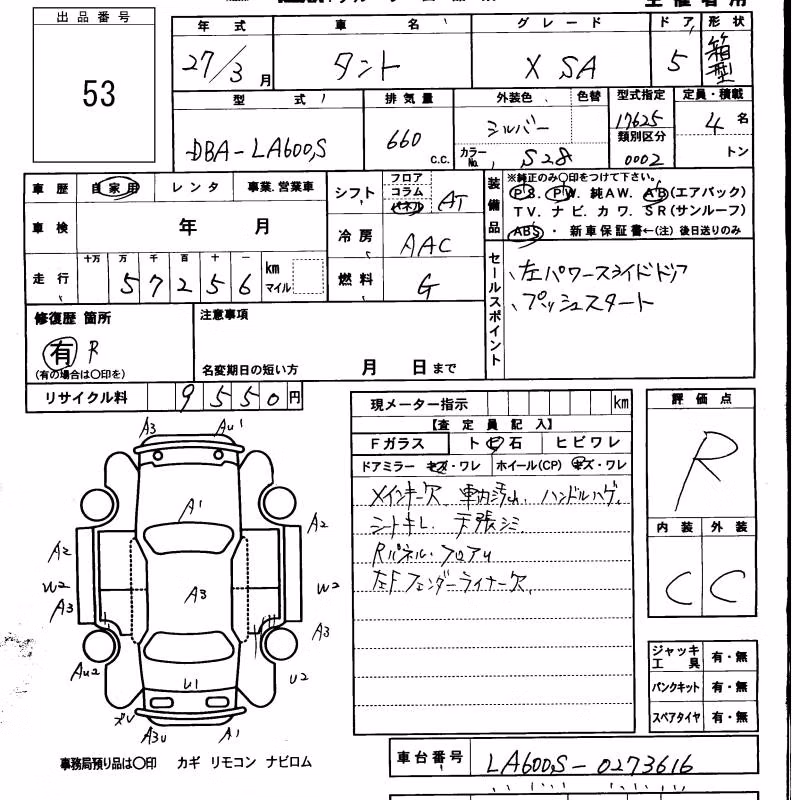 出品番号
53
年式 車名 グレード ドア 形状
27/3月 タント X SA 5 箱型
型式 排気量 外装色 色替 型式指定 定員・積載
DBA-LA600S 660 c.c. シルバー 17625 4名
カラーNo. S28 類別区分 0002 トン
車歴 自家用 レンタ 事業.営業車
シフト フロア コラム パネル AT
装備品 ※純正のみ〇印をつけて下さい。
PS. PW. 純AW. AB(エアバック)
TV. ナビ. カワ. SR(サンルーフ)
ABS ・ 新車保証書←(注) 後日送りのみ
車検 年 月
冷房 AAC
走行 十万 万 千 百 十 一
57256 km マイル
燃料 G
セールスポイント
、左パワースライドドア
、プッシュスタート
修復歴 箇所
有 R
(有の場合は〇印を)
注意事項
名変期日の短い方 月 日まで
リサイクル料 9550円
現メーター指示 km
【査定員記入】
Fガラス トビ石 ヒビワレ
ドアミラー キズ・ワレ ホイール(CP) キズ・ワレ
メインキー欠 車内汚れ ハンドルハゲ。
シートキレ 天張シミ
Rパネル・フロアU
左Fフェンダーライナー欠
評価点
R
内装 外装
C C
A3 AU1
A1
A2 A2
W2 A3 W2
A3 A3
AU2 U2
U1
ズレ
A3U A1
ジャッキ工具 有・無
パンクキット 有・無
スペアタイヤ 有・無
事務局預り品は〇印 カギ リモコン ナビロム
車台番号 LA600S-0273616